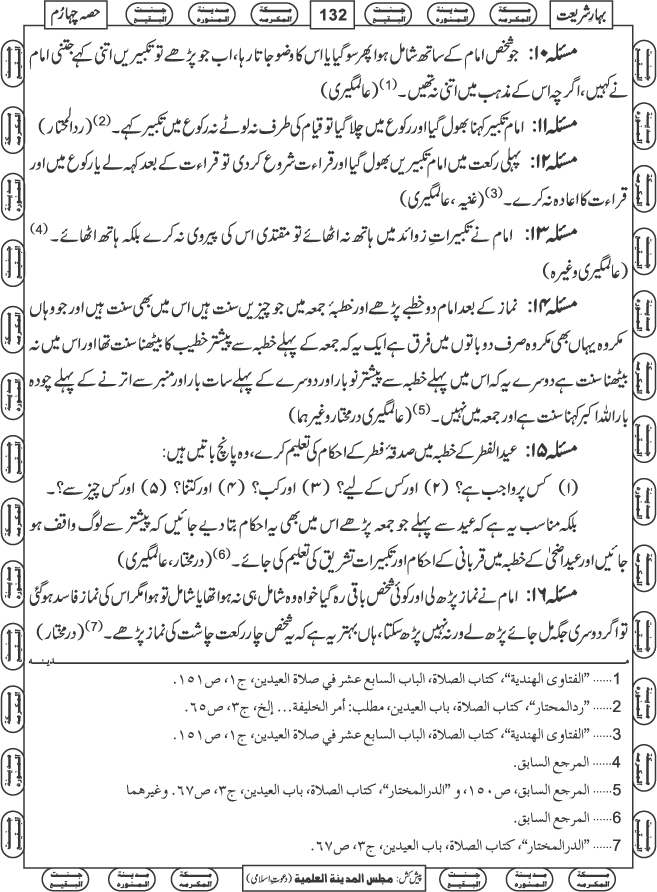 بہارِ شریعت
132
حصہ چہارم
مسئلہ ۱۰: جو شخص امام کے ساتھ شامل ہوا پھر سو گیا یا اس کا وضو جاتا رہا، اب جو پڑھے تو تکبیریں اتنی کہے جتنی امام
نے کہیں، اگرچہ اس کے مذہب میں اتنی نہ تھیں۔(1) (عالمگیری)
مسئلہ ۱۱: امام تکبیر کہنا بھول گیا اور رکوع میں چلا گیا تو قیام کی طرف نہ لوٹے نہ رکوع میں تکبیر کہے۔(2) (ردالمحتار)
مسئلہ ۱۲: پہلی رکعت میں امام تکبیریں بھول گیا اور قراءت شروع کر دی تو قراءت کے بعد کہہ لے یا رکوع میں اور
قراءت کا اعادہ نہ کرے۔(3) (غنیہ، عالمگیری)
مسئلہ ۱۳: امام نے تکبیراتِ زوائد میں ہاتھ نہ اٹھائے تو مقتدی اس کی پیروی نہ کرے بلکہ ہاتھ اٹھائے۔(4)
(عالمگیری وغیرہ)
مسئلہ ۱۴: نماز کے بعد امام دو خطبے پڑھے اور خطبۂ جمعہ میں جو چیزیں سنت ہیں اس میں بھی سنت ہیں اور جو وہاں
مکروہ یہاں بھی مکروہ صرف دو باتوں میں فرق ہے ایک یہ کہ جمعہ کے پہلے خطبہ سے پیشتر خطیب کا بیٹھنا سنت تھا اور اس میں نہ
بیٹھنا سنت ہے دوسرے یہ کہ اس میں پہلے خطبہ سے پیشتر نو بار اور دوسرے کے پہلے سات بار اور منبر سے اترنے کے پہلے چودہ
بار اللہ اکبر کہنا سنت ہے اور جمعہ میں نہیں۔(5) (عالمگیری درمختار وغیرہما)
مسئلہ ۱۵: عیدالفطر کے خطبہ میں صدقۂ فطر کے احکام کی تعلیم کرے، وہ پانچ باتیں ہیں:
(۱) کس پر واجب ہے؟ (۲) اور کس کے لیے؟ (۳) اور کب؟ (۴) اور کتنا؟ (۵) اور کس چیز سے؟۔
بلکہ مناسب یہ ہے کہ عید سے پہلے جو جمعہ پڑھے اس میں بھی یہ احکام بتا دیے جائیں کہ پیشتر سے لوگ واقف ہو
جائیں اور عیدِ اضحیٰ کے خطبہ میں قربانی کے احکام اور تکبیراتِ تشریق کی تعلیم کی جائے۔(6) (درمختار، عالمگیری)
مسئلہ ۱۶: امام نے نماز پڑھ لی اور کوئی شخص باقی رہ گیا خواہ وہ شامل ہی نہ ہوا تھا یا شامل تو ہوا مگر اس کی نماز فاسد ہو گئی
تو اگر دوسری جگہ مل جائے پڑھ لے ورنہ نہیں پڑھ سکتا، ہاں بہتر یہ ہے کہ یہ شخص چار رکعت چاشت کی نماز پڑھے۔(7) (درمختار)
1...... ”الفتاوى الهندية“، كتاب الصلاة، الباب السابع عشر في صلاة العيدين، ج١، ص١٥١.
2...... ”ردالمحتار“، كتاب الصلاة، باب العيدين، مطلب: أمر الخليفة... إلخ، ج٣، ص٦٥.
3...... ”الفتاوى الهندية“، كتاب الصلاة، الباب السابع عشر في صلاة العيدين، ج١، ص١٥١.
4...... المرجع السابق.
5...... المرجع السابق، ص١٥٠، و ”الدرالمختار“، كتاب الصلاة، باب العيدين، ج٣، ص٦٧. وغيرهما
6...... المرجع السابق.
7...... ”الدرالمختار“، كتاب الصلاة، باب العيدين، ج٣، ص٦٧.
پیش کش: مجلس المدينة العلمية (دعوتِ اسلامی)